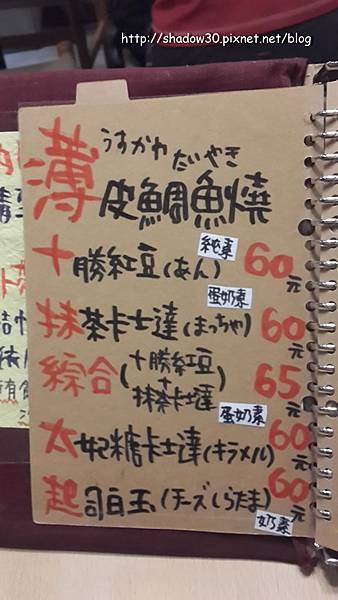 http://shadow30.pixnet.net/blog
うすかわ たいやき
薄皮鯛魚燒
純素
十勝紅豆(あん) 60元
蛋奶素
抹茶卡士達(まっちゃ) 60元
綜合(十勝紅豆+抹茶卡士達) 65元
蛋奶素
太妃糖卡士達(キャラメル) 60元
起司白玉(チーズしらたま) 60元
奶素